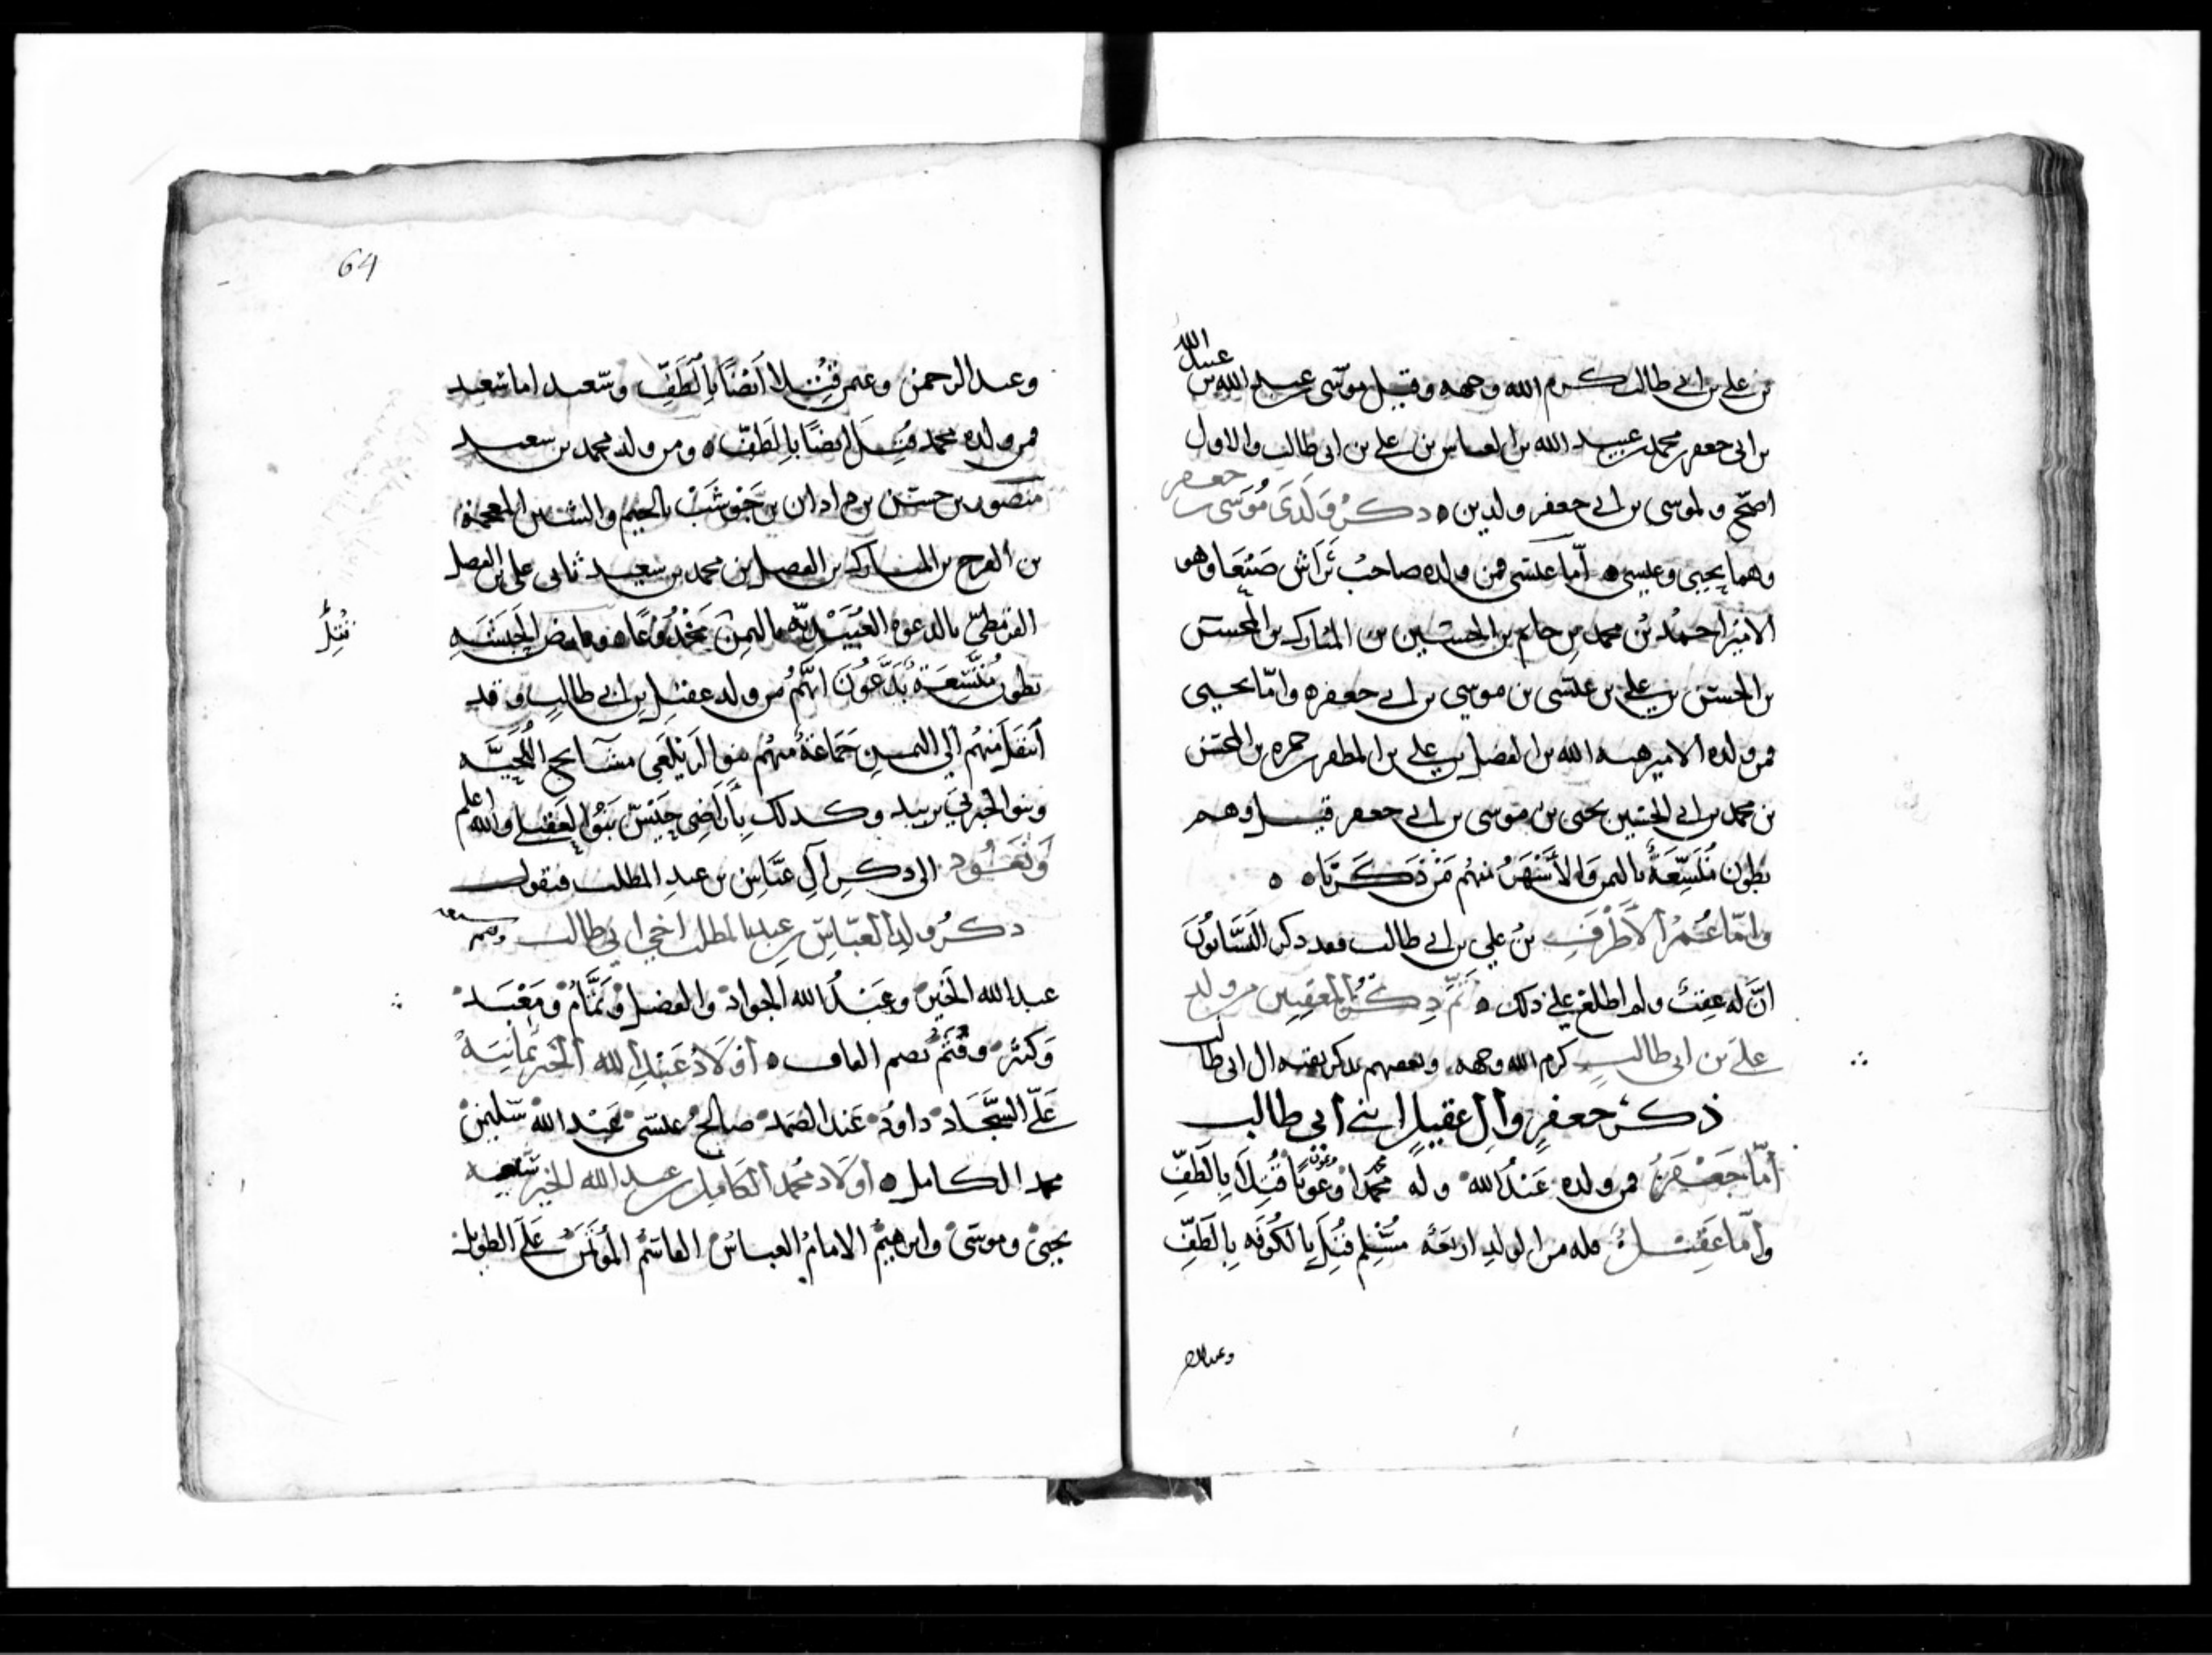 بن علي بن ابي طالب كرم الله وجهه وقيل موسى بن عبد الله بن عبيد الله
بن ابي جعفر محمد بن عبيد الله بن العباس بن علي بن ابي طالب والاول
اصح ولموسى بن ابي جعفر ولدين ه ذكر ولدي موسى بن جعفر
وهما يحيى وعيسى ه أما عيسى فمن ولده صاحب صنعا وهو
الامير احمد بن محمد بن حاتم بن الحسين بن المبارك بن المحسن
بن الحسن بن علي بن عيسى بن موسى بن ابي جعفر ه وامّا يحيى
فمن ولده الامير هبه الله بن الفضل بن علي بن المظفر بن حمزه بن المحسن
بن محمد بن ابي الحسين يحيى بن موسى بن ابي جعفر قيل وهم
بطون مُتَّسِعَةٌ باليمن والأشهر منهم من ذكرنا ه ه
وامّا عُمَرُ الأَطْرَف بنُ علي بن ابي طالب فقد ذكر النسّابُونَ
انَّ له عقبٌ ولم اطلع على ذلك ه تمّ ذكر المعقبين من ولد
علي بن ابي طالب كرم الله وجهه وبعضهم بذكر بقيه ال ابي طالب
ذكر جعفرٍ وآل عقيلٍ ابني أبي طالب
أمّا جَعْفَرُ فمن ولده عَبْدُ الله وله محمدا وعونا قُتِلَا بالطَّفِّ
وأمّا عَقِيلُ فله من الولد اربعه مُسْلِم قُتِلَ بالكُوفَه بِالطَّفِّ
وعبد الرحمن
64
وعبد الرحمن وعمر قُتِلا أيضًا بالطَّفِّ وسعيد اما سعيد
فمن ولده محمد قُتِلَ ايضًا بالطَّفّ ه ومن ولد محمد بن سعيد
منصور بن حسن بن زاذان بن حَوْشَبْ بالجيم والشين المعجمه
بن الفرج بن المبارك بن الفضل بن محمد بن سعيد ثاني علي بن الفضل
القرمطيّ بالدعوه العُبَيْدِيّه باليمن مخدُوعًا ه وبأرض الحَبَشَه
بطون مُتَّسِعَةٌ يَدَّعُونَ انَّهُمُ من ولد عقيل بن ابي طالبٍ وقد
انتقل منهم الى اليمن جَمَاعَةٌ منهم بنو الزيلعي مشايخ اللُّحَيَّه
وبنو الجبرتي بزبيد وكذلك بأراضي حَيْسٍ بَنُو العَقيلي والله اعلم
وَنَعُود الى ذكر آلِ عَبَّاسِ بن عبدِ المطلب فنقول
ذكرُ ولد العبّاسِ بن عبد المطلب اخي ابي طالب وهم سبعه
عبد الله الحَبْر وعَبْدُ الله الجواد والفضل وتَمَّامُ ومَعْبَد
وكثير وقُثَمُ بضم القاف ه أَوْلَادُ عَبْدِ الله الحَبْر ثمانيه
عَليّ السجّاد داود عبد الصمد صالح عيسى عبد الله سليمن
محمد الكامل ه أولاد محمد الكامل بن عبد الله الحبر سبعه
يحيى وموسى وابرهيمُ الامامُ العباسُ القاسمُ عَلَى الطويل